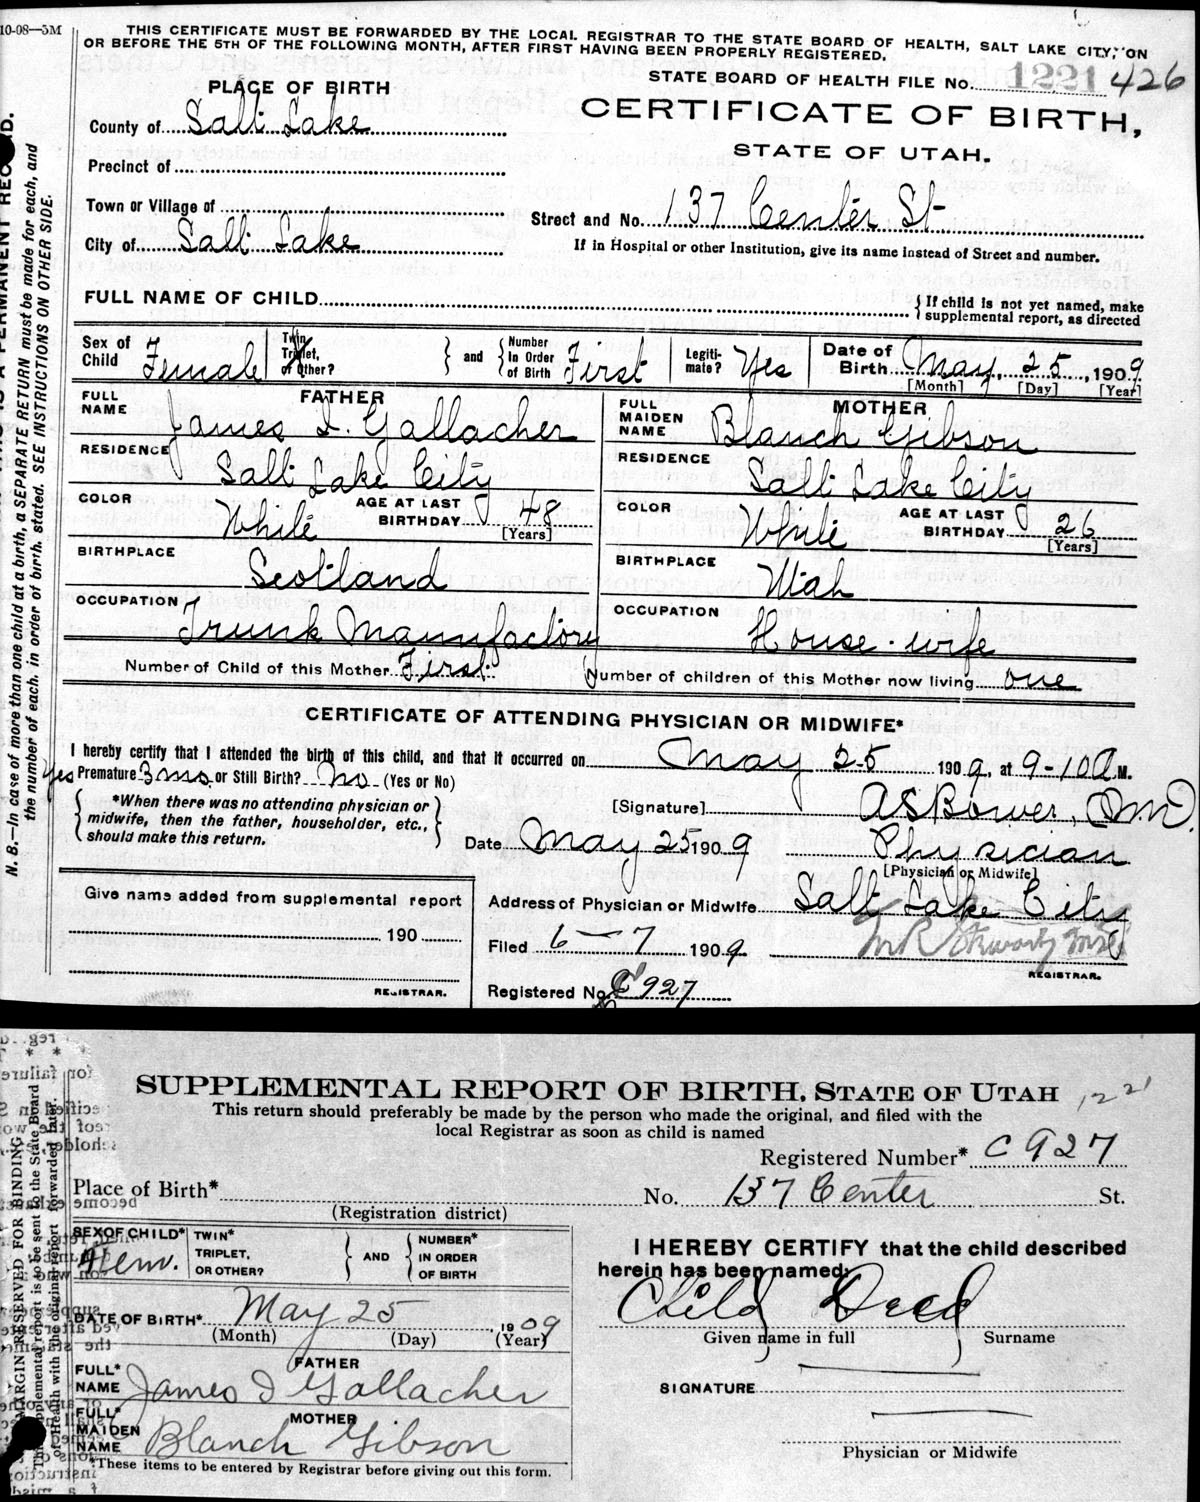 10-08—5M
THIS CERTIFICATE MUST BE FORWARDED BY THE LOCAL REGISTRAR TO THE STATE BOARD OF HEALTH, SALT LAKE CITY, ON
OR BEFORE THE 5TH OF THE FOLLOWING MONTH, AFTER FIRST HAVING BEEN PROPERLY REGISTERED.
STATE BOARD OF HEALTH FILE No. 1221 426
PLACE OF BIRTH
CERTIFICATE OF BIRTH,
STATE OF UTAH.
County of Salt Lake
Precinct of
Town or Village of
Street and No. 137 Center St
City of Salt Lake
If in Hospital or other Institution, give its name instead of Street and number.
FULL NAME OF CHILD
{ If child is not yet named, make
supplemental report, as directed
Sex of Child Female
Twin, Triplet, or Other? } and { Number In Order of Birth First
Legiti-mate? Yes
Date of Birth May 25, 1909
[Month] [Day] [Year]
FATHER
MOTHER
FULL NAME James I. Gallacher
FULL MAIDEN NAME Blanch Gibson
RESIDENCE Salt Lake City
RESIDENCE Salt Lake City
COLOR White AGE AT LAST BIRTHDAY 48 [Years]
COLOR White AGE AT LAST BIRTHDAY 26 [Years]
BIRTHPLACE Scotland
BIRTHPLACE Utah
OCCUPATION Trunk Manufactory
OCCUPATION House-wife
Number of Child of this Mother First
Number of children of this Mother now living one
CERTIFICATE OF ATTENDING PHYSICIAN OR MIDWIFE*
I hereby certify that I attended the birth of this child, and that it occurred on May 25 1909, at 9-10 A M.
yes Premature 3 mo. or Still Birth? No (Yes or No)
{ *When there was no attending physician or
midwife, then the father, householder, etc.,
should make this return. }
[Signature] A S Bower, M D.
Date May 25 1909
Physician
[Physician or Midwife]
Give name added from supplemental report
190
REGISTRAR.
Address of Physician or Midwife Salt Lake City
Filed 6—7 1909
REGISTRAR.
Registered No. C 927
N. B.—In case of more than one child at a birth, a SEPARATE RETURN must be made for each, and
the number of each, in order of birth, stated. SEE INSTRUCTIONS ON OTHER SIDE.
SUPPLEMENTAL REPORT OF BIRTH. STATE OF UTAH
1221
This return should preferably be made by the person who made the original, and filed with the
local Registrar as soon as child is named
Registered Number* C 927
Place of Birth*
No. 137 Center St.
(Registration district)
SEX OF CHILD* Fem.
TWIN* TRIPLET, OR OTHER? } AND { NUMBER* IN ORDER OF BIRTH
I HEREBY CERTIFY that the child described
herein has been named:
Child Died
Given name in full Surname
DATE OF BIRTH* May 25, 1909
(Month) (Day) (Year)
FATHER
FULL* NAME James I Gallacher
SIGNATURE
MOTHER
FULL* MAIDEN NAME Blanch Gibson
Physician or Midwife
*These items to be entered by Registrar before giving out this form.
MARGIN RESERVED FOR BINDING